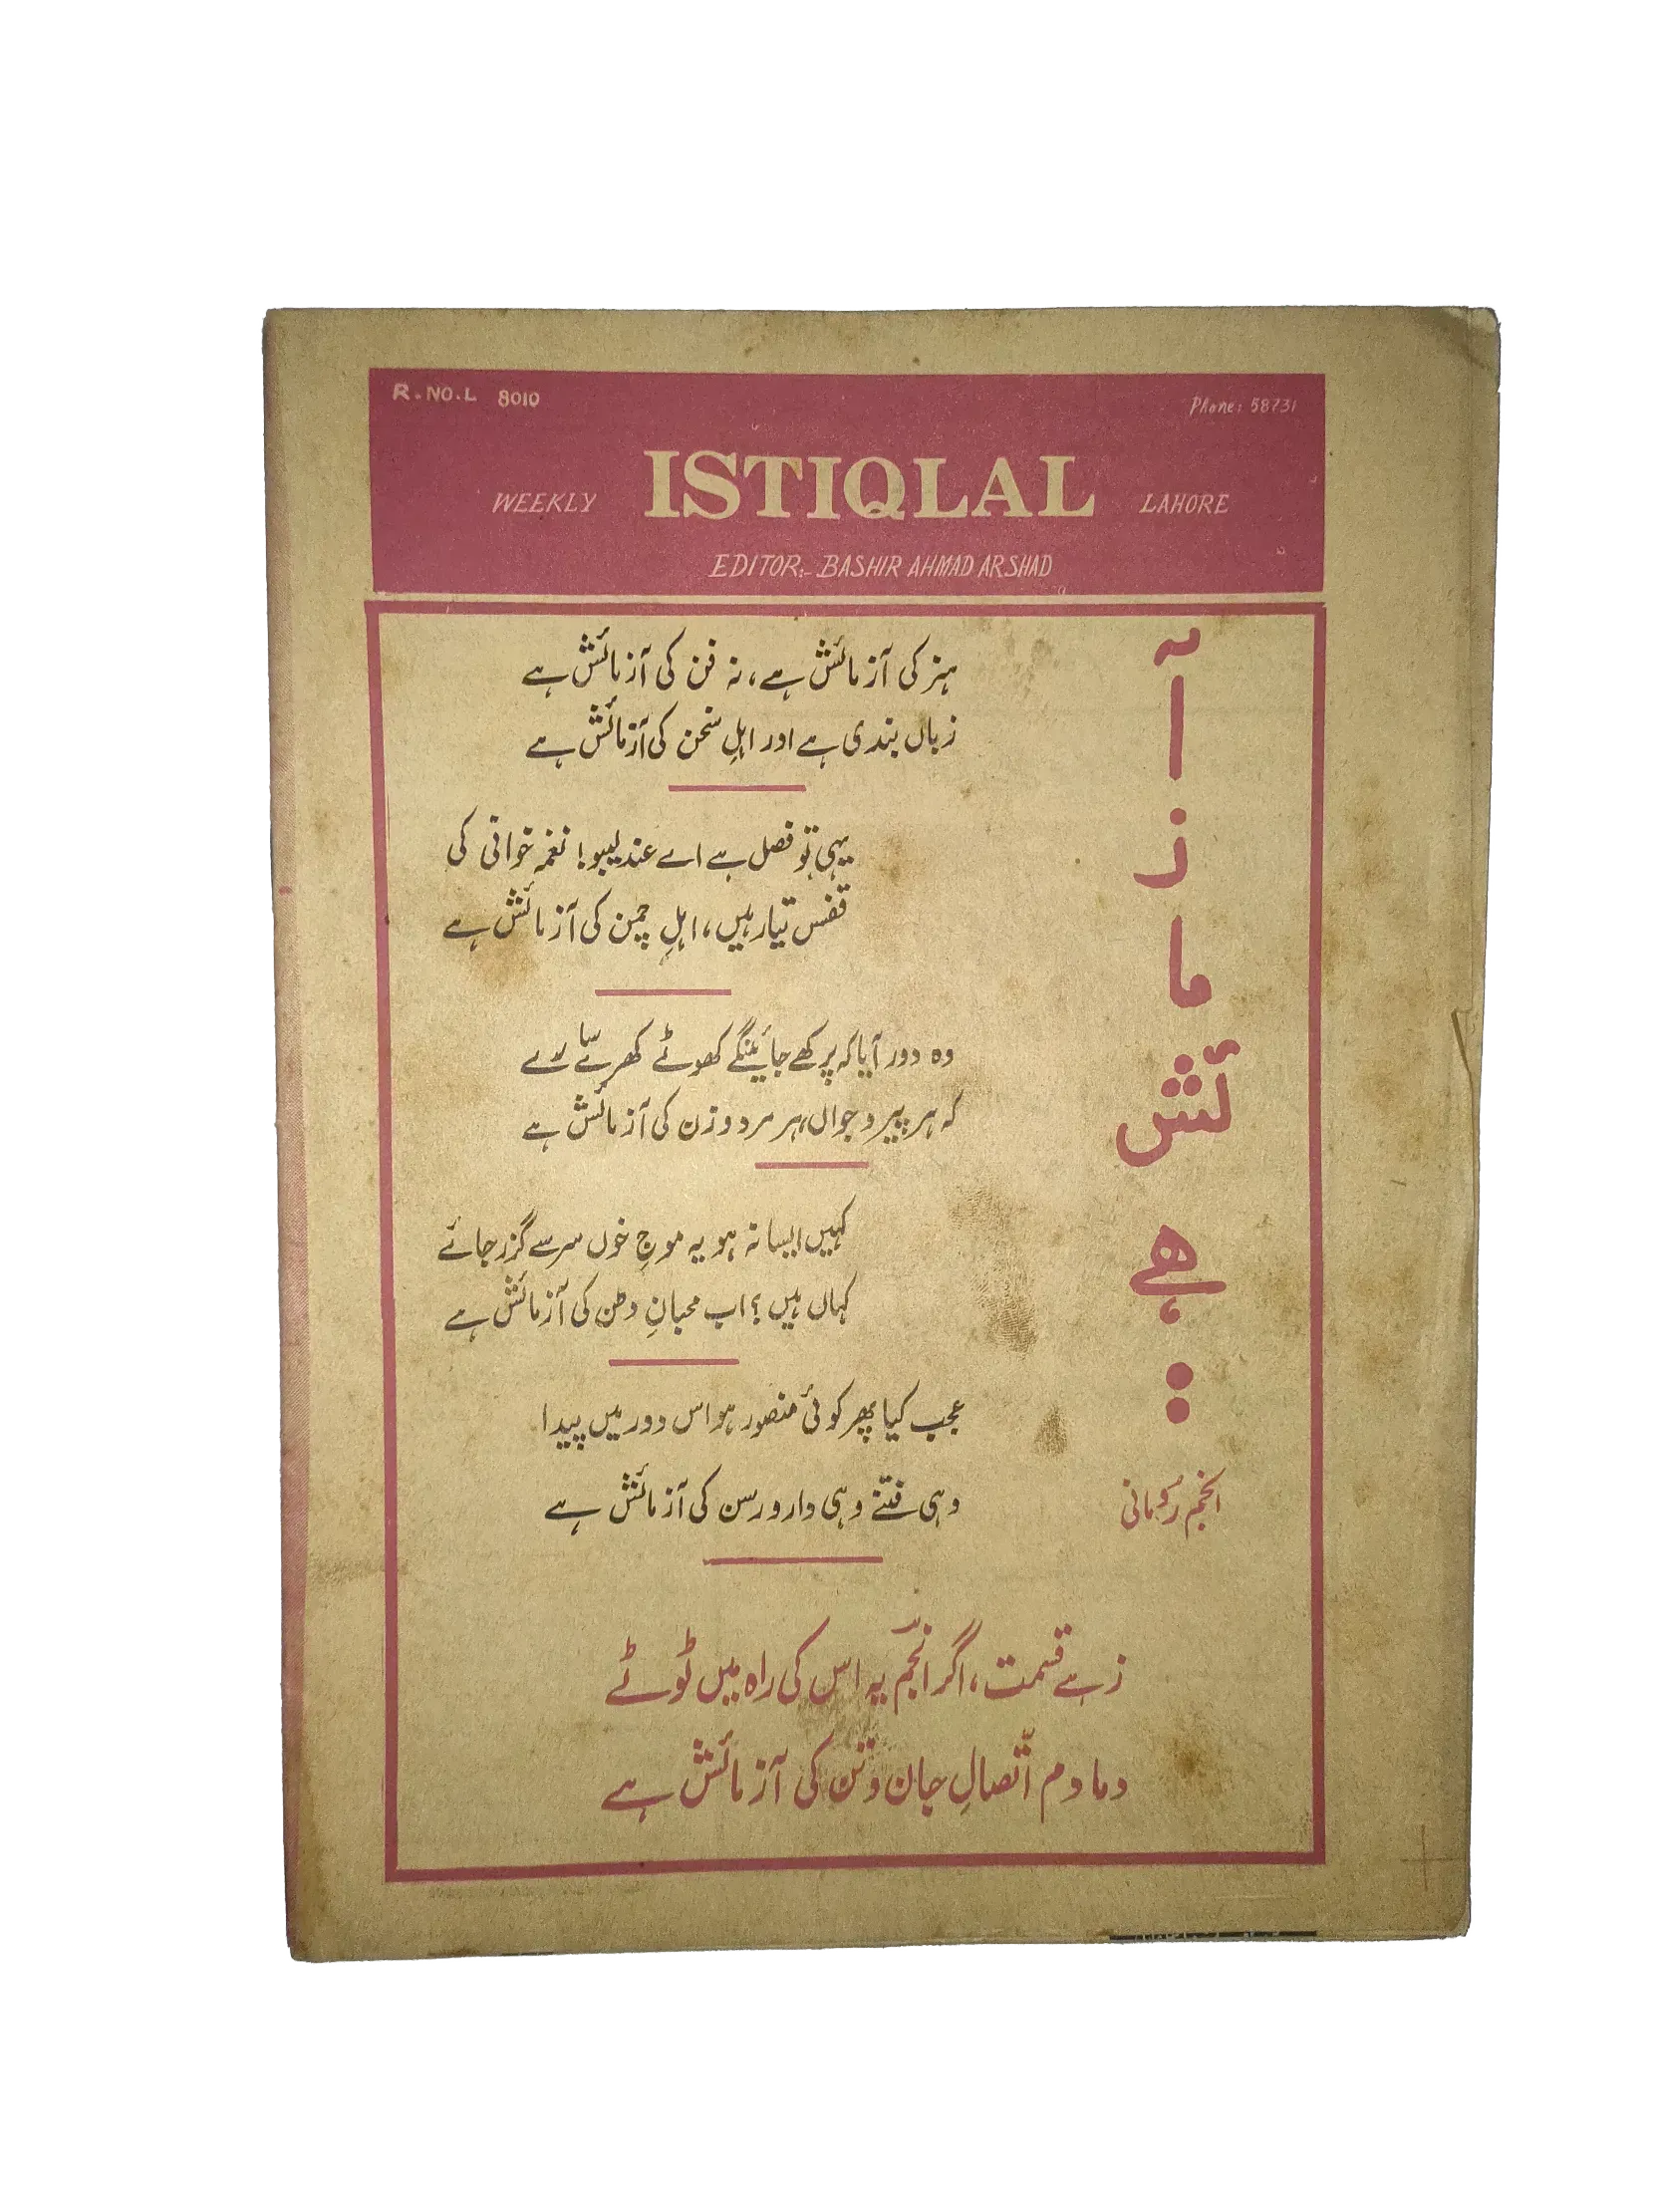 R.NO.L 8010
Phone: 58731
WEEKLY ISTIQLAL LAHORE
EDITOR:- BASHIR AHMAD ARSHAD
آزمائش ہے :
انجم رومانی
ہنر کی آزمائش ہے، نہ فن کی آزمائش ہے
زباں بندی ہے اور اہلِ سخن کی آزمائش ہے
یہی تو فصل ہے اے عندلیبو! نغمہ خوانی کی
قفس تیار ہیں، اہلِ چمن کی آزمائش ہے
وہ دور آیا کہ پرکھے جائینگے کھوٹے کھرے سارے
کہ ہر پیر و جواں، ہر مرد و زن کی آزمائش ہے
کہیں ایسا نہ ہو یہ موجِ خوں سر سے گزر جائے
کہاں ہیں؟ اب محبانِ وطن کی آزمائش ہے
عجب کیا پھر کوئی منصور ہو اس دور میں پیدا
وہی فتنے وہی دار و رسن کی آزمائش ہے
زہے قسمت، اگر انجم یہ اس کی راہ میں ٹوٹے
دمادم اتّصالِ جان و تن کی آزمائش ہے